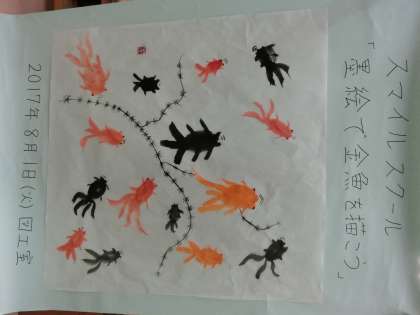 スマイルスクール
「墨絵で金魚を描こう」
2017年8月1日(火)図工室